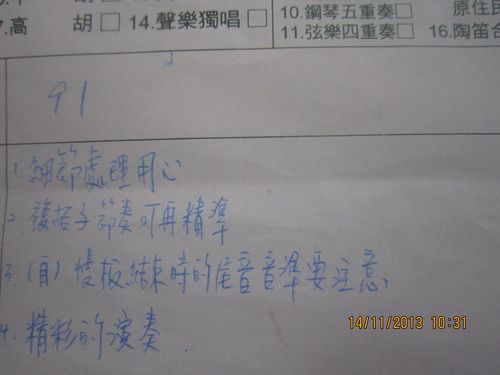 7.高　胡□ 14.聲樂獨唱□
10.鋼琴五重奏□ 原住民
11.弦樂四重奏□ 16.陶笛合
91
1.細節處理用心
2.複拍子節奏可再精準
3.(自)慢板結束時的尾音音準要注意
4.精彩的演奏.
14/11/2013 10:31